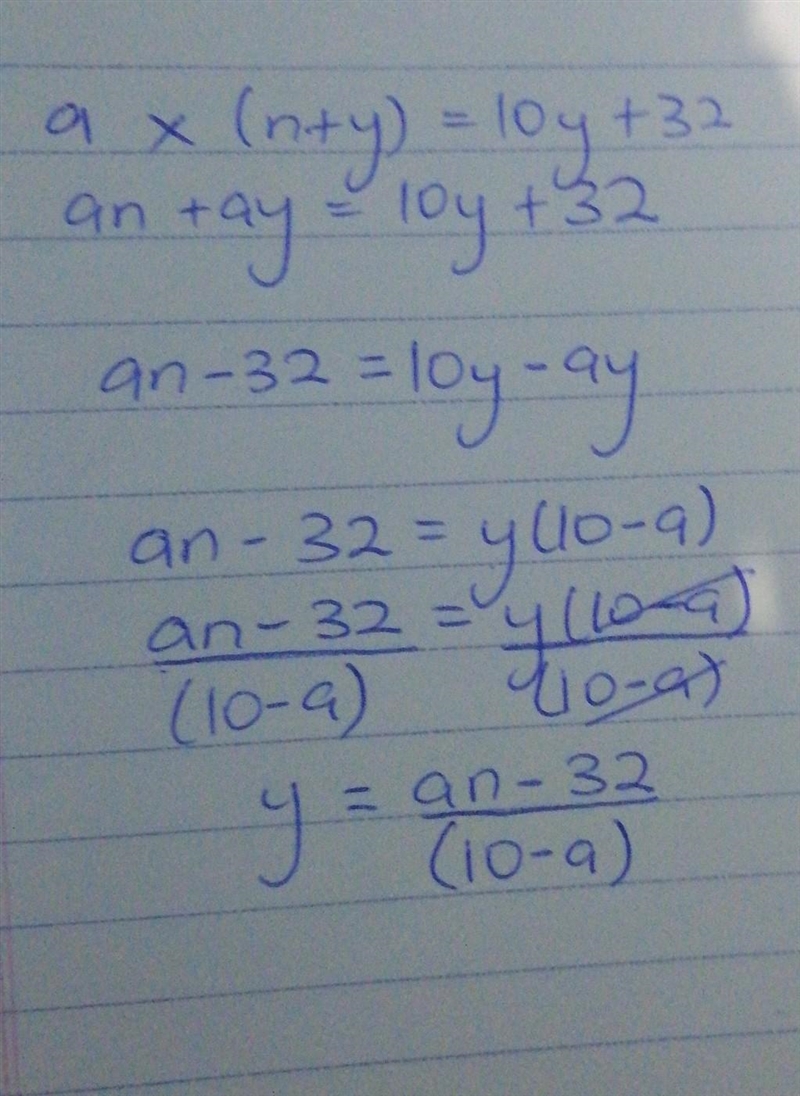 a × (n+y) = 10y + 32
an + ay = 10y + 32
an - 32 = 10y - ay
an - 32 = y(10-a)
an - 32 = y(10-a)
(10-a) (10-a)
y = an - 32
(10-a)